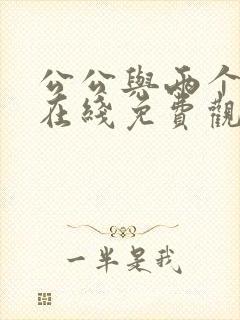 公公與兩个
在綫免費觀
一半是我